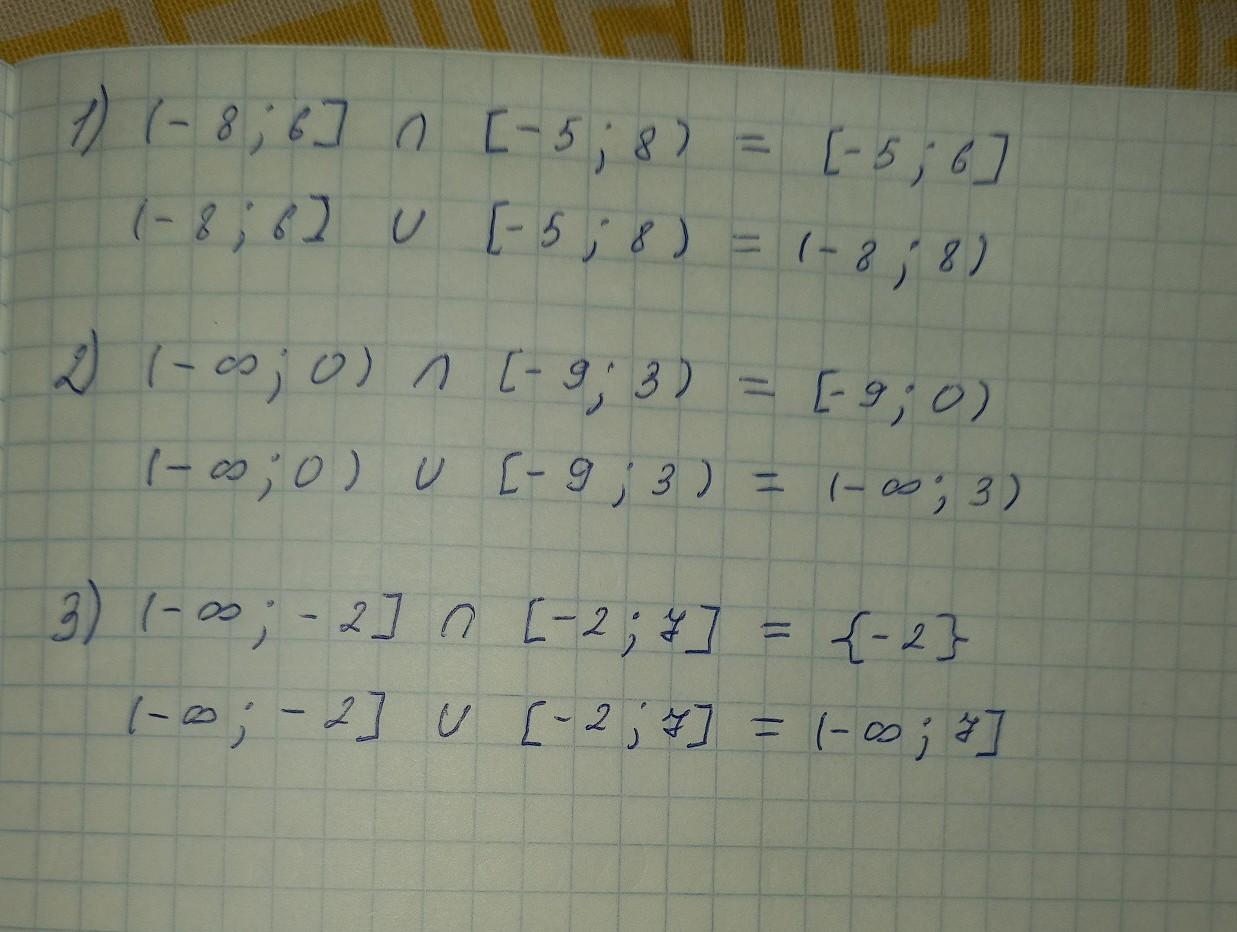 1) (- 8 ; 6] ∩ [- 5 ; 8) = [- 5 ; 6]
(- 8 ; 6] ∪ [- 5 ; 8) = (- 8 ; 8)
2) (- ∞ ; 0) ∩ [- 9 ; 3) = [- 9 ; 0)
(- ∞ ; 0) ∪ [- 9 ; 3) = (- ∞ ; 3)
3) (- ∞ ; - 2] ∩ [- 2 ; 7] = {- 2}
(- ∞ ; - 2] ∪ [- 2 ; 7] = (- ∞ ; 7]